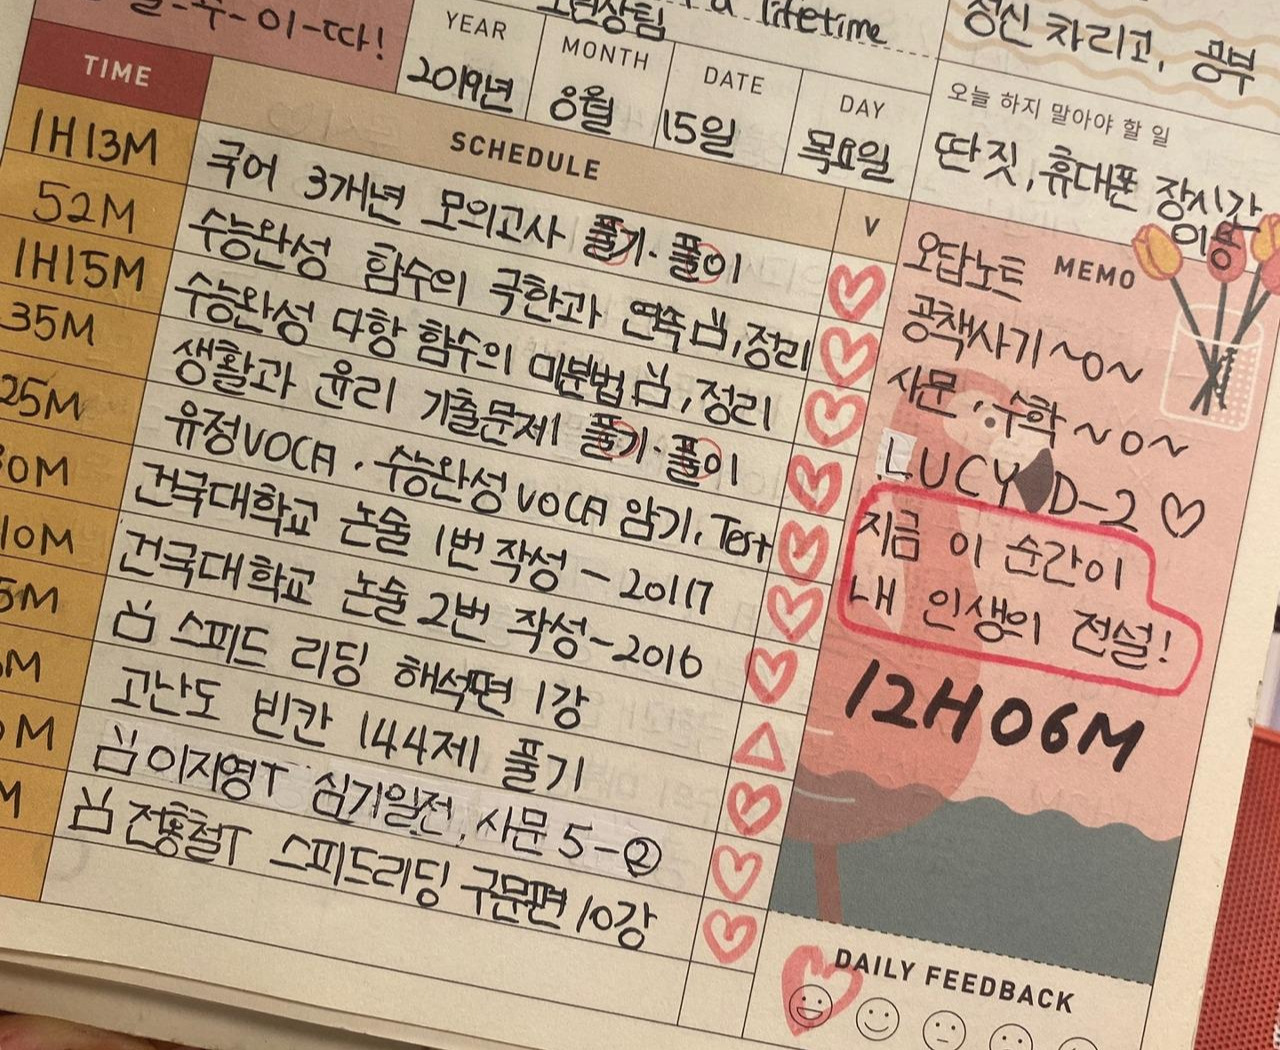 할-수-이-따!
lifetime
정신 차리고, 공부
YEAR MONTH DATE DAY
2019년 8월 15일 목요일
오늘 하지 말아야 할 일
딴짓, 휴대폰 장시간
이용
TIME SCHEDULE V
1H13M 국어 3개년 모의고사 풀기·풀이
52M 수능완성 함수의 극한과 연속 인강, 정리
1H15M 수능완성 다항함수의 미분법 인강, 정리
35M 생활과 윤리 기출문제 풀기·풀이
25M 유정VOCA·수능완성 VOCA 암기, Test
0M 건국대학교 논술 1번 작성 - 2017
10M 건국대학교 논술 2번 작성-2016
5M 스피드 리딩 해석편 1강
M 고난도 빈칸 144제 풀기
M 이지영T 심기일전, 사문 5-②
M 전홍철T 스피드리딩 구문편 10강
MEMO
오답노트
공책사기~o~
사문, 수학~o~
LUCY D-2 ♡
지금 이 순간이
내 인생의 전설!
12H06M
DAILY FEEDBACK